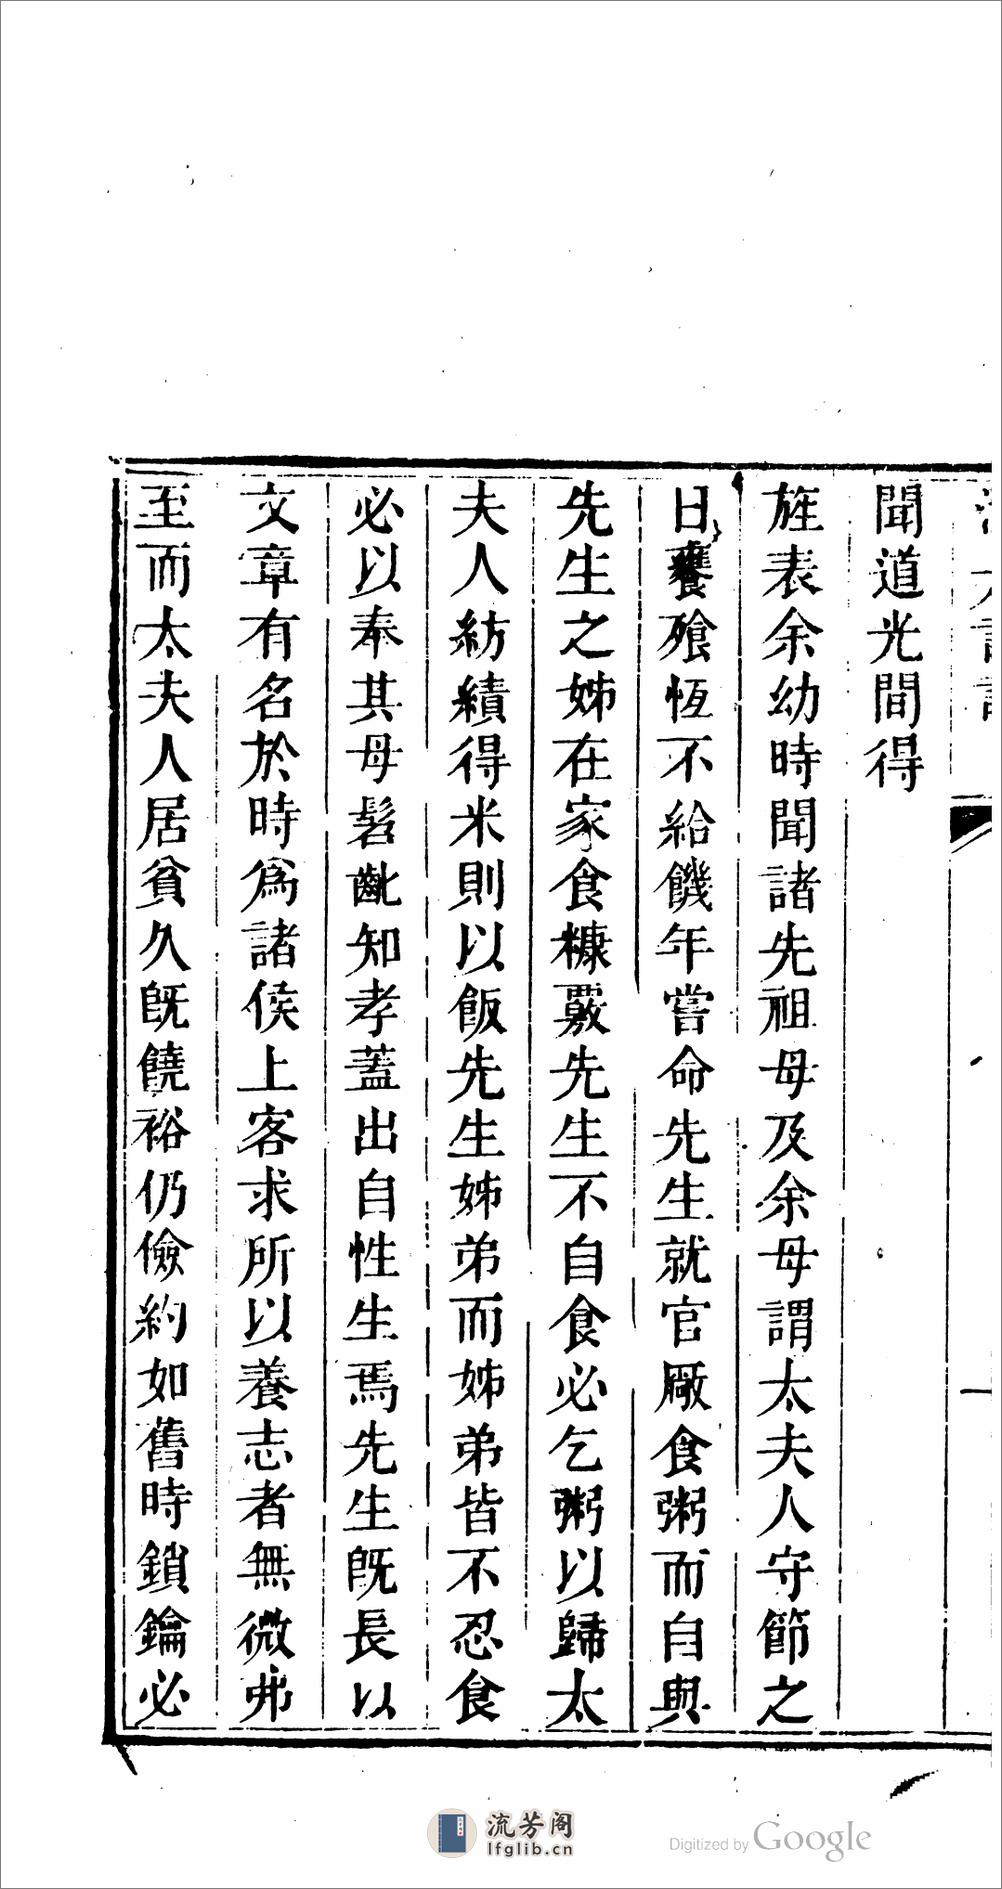 聞道光間得
旌表余幼時聞諸先祖母及余母謂太夫人守節之
日饔飱恆不給饑年嘗命先生就官厰食粥而自與
先生之姊在家食糠覈先生不自食必乞粥以歸太
夫人紡績得米則以飯先生姊弟而姊弟皆不忍食
必以奉其母髫齔知孝蓋出自性生焉先生旣長以
文章有名於時爲諸侯上客求所以養志者無微弗
至而太夫人居貧久旣饒裕仍儉約如舊時鎖鑰必
一
流芳阁
lfglib.cn
Digitized by Google